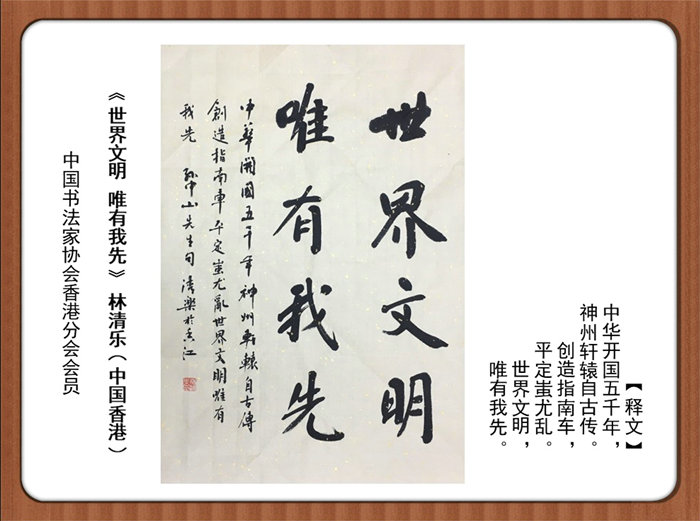 【释文】
中华开国五千年，
神州轩辕自古传。
创造指南车，
平定蚩尤乱。
世界文明，
唯有我先。
世界文明
唯有我先
中華開國五千年神州軒轅自古傳
創造指南車平定蚩尤亂世界文明唯有
我先 孫中山先生句 清樂於香江
《世界文明 唯有我先》林清乐（中国香港）
中国书法家协会香港分会会员